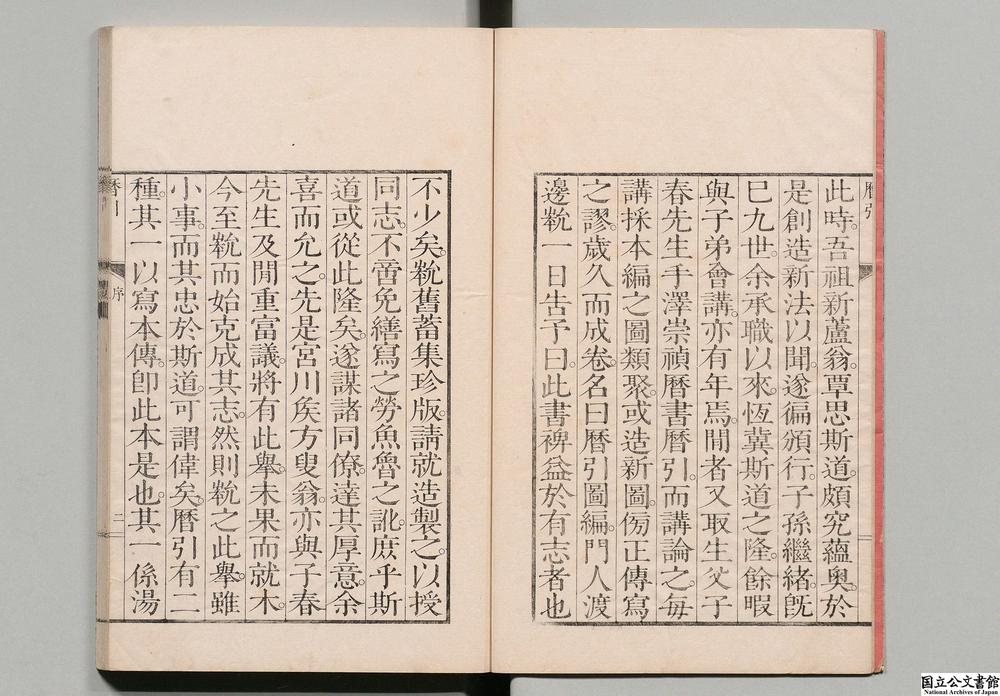 曆引
此時。吾祖新蘆翁。覃思斯道。頗究蘊奧。於
是創造新法以聞。遂徧頒行。子孫繼緒。旣
巳九世。余承職以來。恆冀斯道之隆。餘暇
與子弟會講。亦有年焉。間者又取生父子
春先生手澤崇禎曆書曆引。而講論之。每
講採本編之圖類聚。或造新圖。傍正傳寫
之謬。歲久而成卷。名曰曆引圖編。門人渡
邊㲝一日告予曰。此書裨益於有志者也
不少矣。㲝舊蓄集珍版。請就造製之。以授
同志。不啻免繕寫之勞。魚魯之訛。庶乎斯
道或從此隆矣。遂謀諸同僚。達其厚意。余
喜而允之。先是宮川矦方叟翁亦與子春
先生及閒重富議。將有此舉。未果而就木。
今至㲝而始克成其志。然則㲝之此舉。雖
小事。而其忠於斯道。可謂偉矣。曆引有二
種。其一以寫本傳。卽此本是也。其一係湯
曆引
序
二
国立公文書館
National Archives of Japan